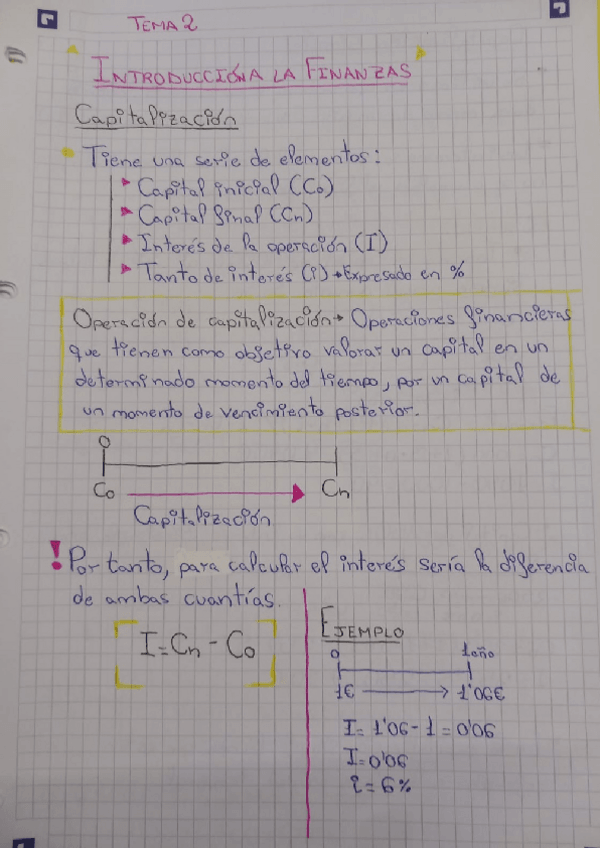 TEMA 2
INTRODUCCIÓN A LA FINANZAS
Capitalización
Tiene una serie de elementos:
Capital inicial (Co)
Capital final (Cn)
Interés de la operación (I)
Tanto de interés (i) → Expresado en %
Operación de capitalización → Operaciones financieras
que tienen como objetivo valorar un capital en un
determinado momento del tiempo, por un capital de
un momento de vencimiento posterior.
0
Co Cn
Capitalización
! Por tanto, para calcular el interés sería la diferencia
de ambas cuantías.
I = Cn - Co
EJEMPLO
0 1año
1€ → 1'06€
I = 1'06 - 1 = 0'06
I = 0'06
i = 6%